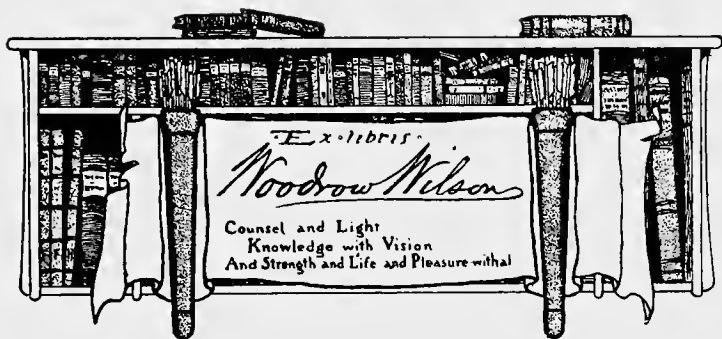 Ex·libris·
Woodrow Wilson
Counsel and Light
Knowledge with Vision
And Strength and Life and Pleasure withal